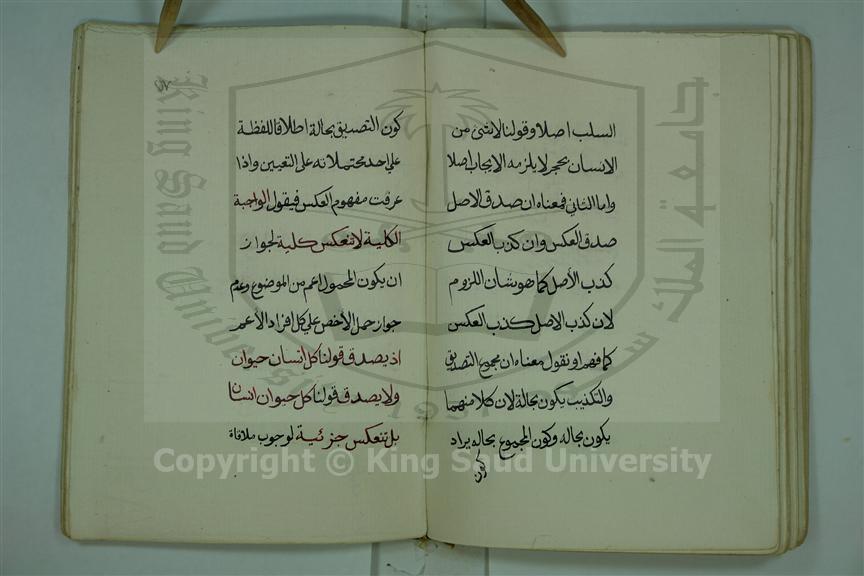 السلب اصلا وقولنا لا شئ من
الانسان بحجر لا يلزمه الايجاب اصلا
واما الثاني فمعناه ان صدق الاصل
صدق العكس وان كذب العكس
كذب الأصل كما هو شان اللزوم
لان كذب الاصل كذب العكس
كما فهم او نقول معناه ان مجموع التصديق
والتكذيب يكون بحالة لان كلا منهما
يكون بحاله وكون المجموع بحاله يراد
كون
كون التصديق بحالة اطلاقا للفظة
علي احد محتملاته على التعيين واذا
عرفت مفهوم العكس فيقول الواجبة
الكلية لا تنعكس كلية لجواز
ان يكون المحمول اعم من الموضوع وعدم
جواز حمل الأخص علي كل افراد الأعم
اذ يصدق قولنا كل انسان حيوان
ولا يصدق قولنا كل حيوان انسان
بل تنعكس جزئية لوجوب ملاقاة
جامعة الملك سعود
King Saud University
1957
Copyright © King Saud University